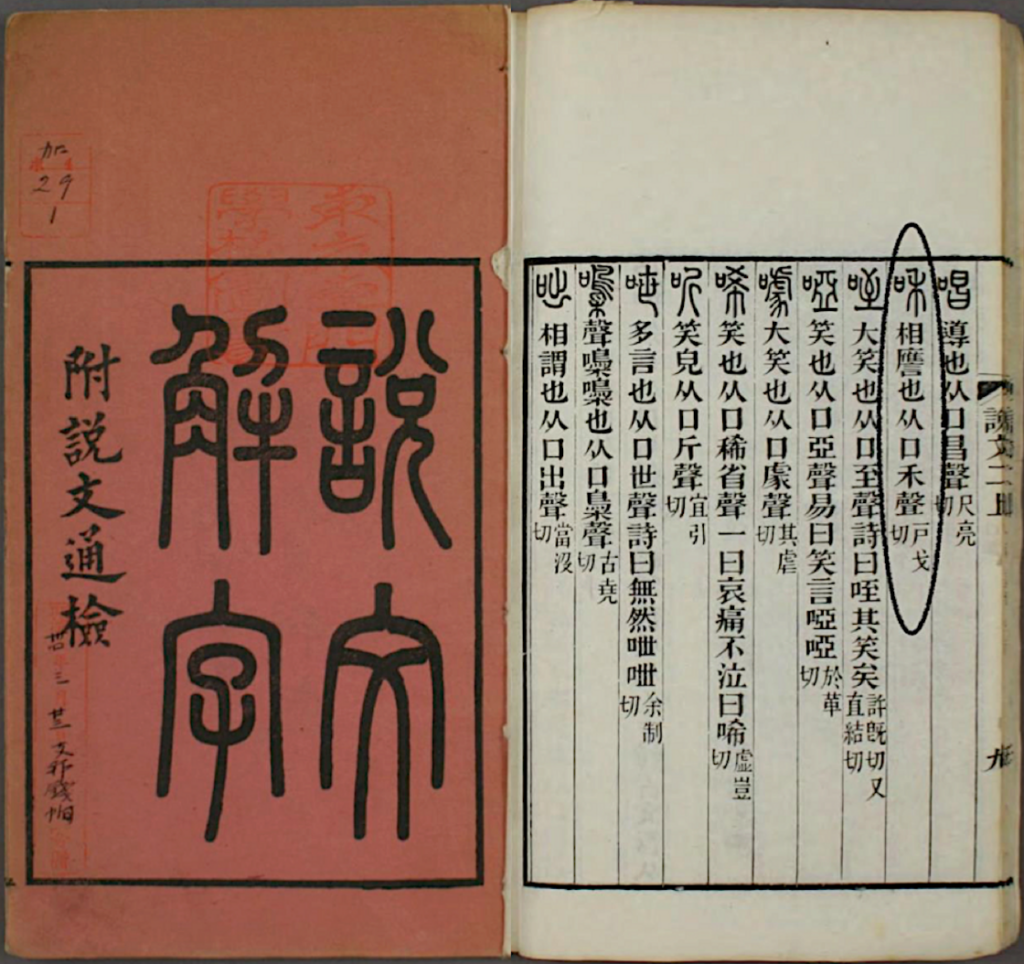 說文
解字
附説文通檢
加
29
1
說文二上
唱導也从口昌聲尺亮切
咊相譍也从口禾聲戶戈切
咥大笑也从口至聲詩曰咥其笑矣許旣切又直結切
啞笑也从口亞聲易曰笑言啞啞於革切
噱大笑也从口豦聲其虐切
唏笑也从口稀省聲一曰哀痛不泣曰唏虛豈切
听笑皃从口斤聲宜引切
呭多言也从口世聲詩曰無然呭呭余制切
嘄聲嘄嘄也从口梟聲古堯切
咄相謂也从口出聲當沒切